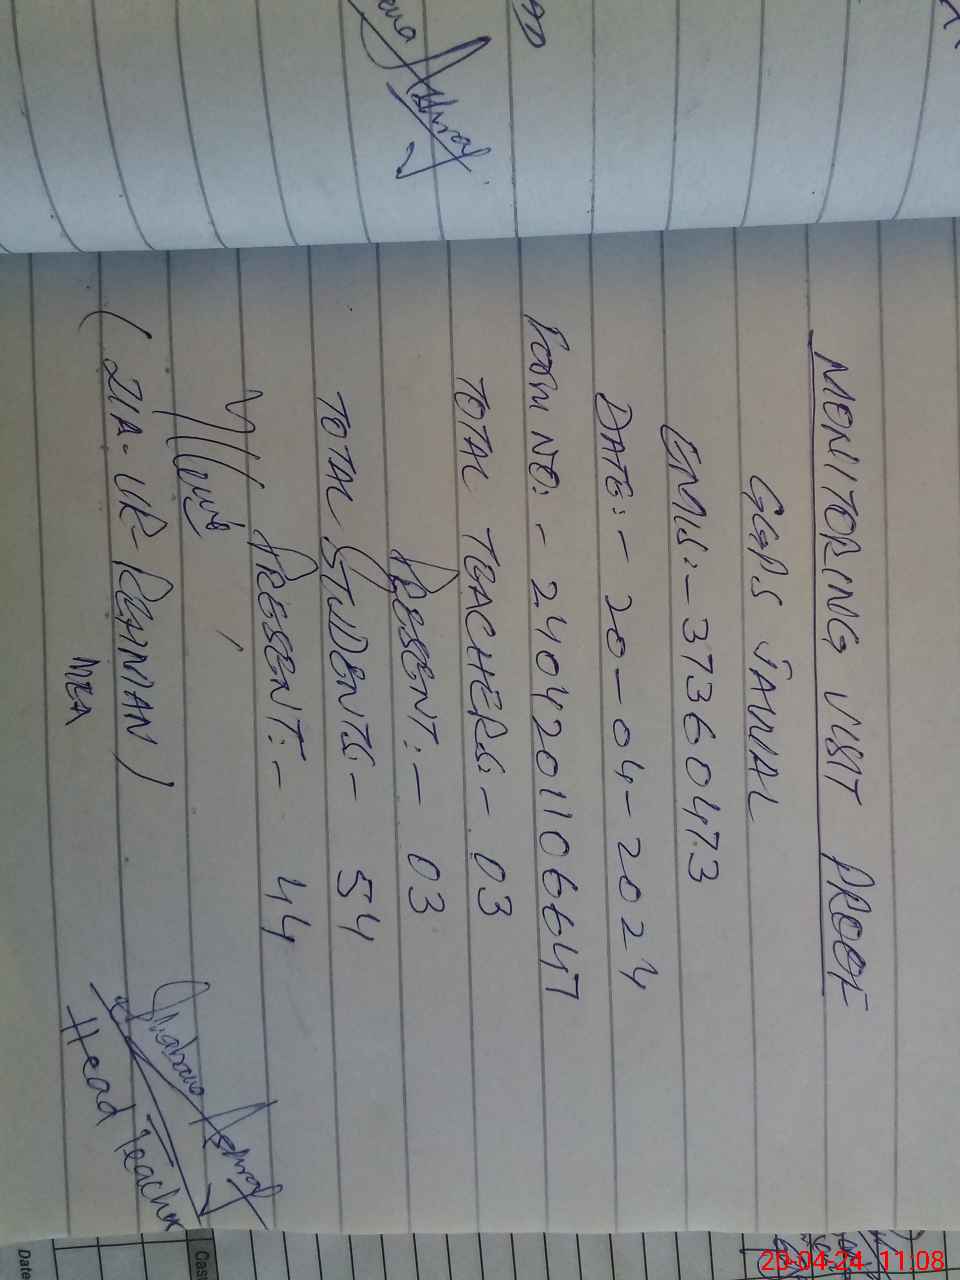 MONITORING VISIT PROOF
GGPS JAWAL
EMIS:- 37360473
DATE:- 20-04-2024
Form NO:- 2404201106647
TOTAL TEACHERS:- 03
PRESENT:- 03
TOTAL STUDENTS:- 54
PRESENT:- 44
(ZIA-UR-REHMAN)
MEA
Shabana Ashraf
Head Teacher
Ashraf
Date
25-04-24 11:08